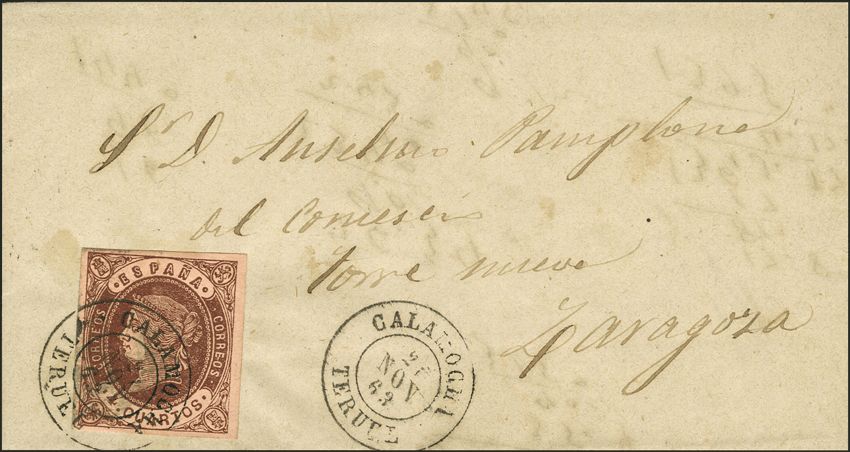 Sr. D. Anselmo Pamplona
del Comercio
torre nueva
Zaragoza
ESPAÑA
CORREOS
CORREOS
CUARTOS
CALAMOC
TERUE
CALAMOCHA
NOV
63
TERUEL